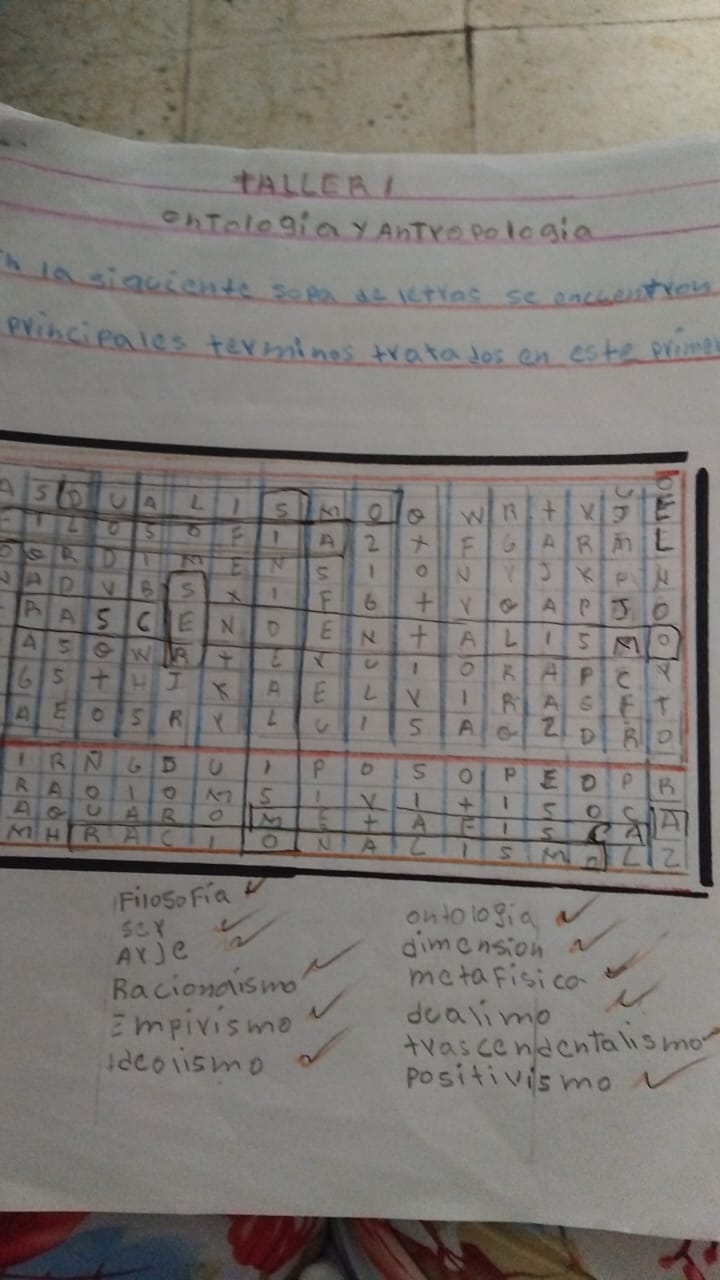 TALLER 1
ontologia y Antropologia
la siguiente sopa de letras se encuentran
principales terminos tratados en este primer
A S D U A L I S M O Q W R T X J E
F I L O S O F I A 2 X F G A R M L
O Q R D I M E N S I O N Y J K P N
N A D V B S X I F 6 T V Q A P J O
R A S C E N D E N T A L I S M O
A S Q W R T L Y U I O R A P C Y
G S T H J K A E L V I R A S F T
A E O S R Y L U I S A Q 2 D R O
I R Ñ G D U I P O S O P E D P R
R A O I O M S I V I T I S O C A
A Q U A R O M E T A F I S C A
M H R A C I O N A L I S M O L 2
Filosofía
ser
Arje
Racionaismo
Empirismo
Ideolismo
ontologia
dimension
metafisica
dualimo
trascendentalismo
positivismo